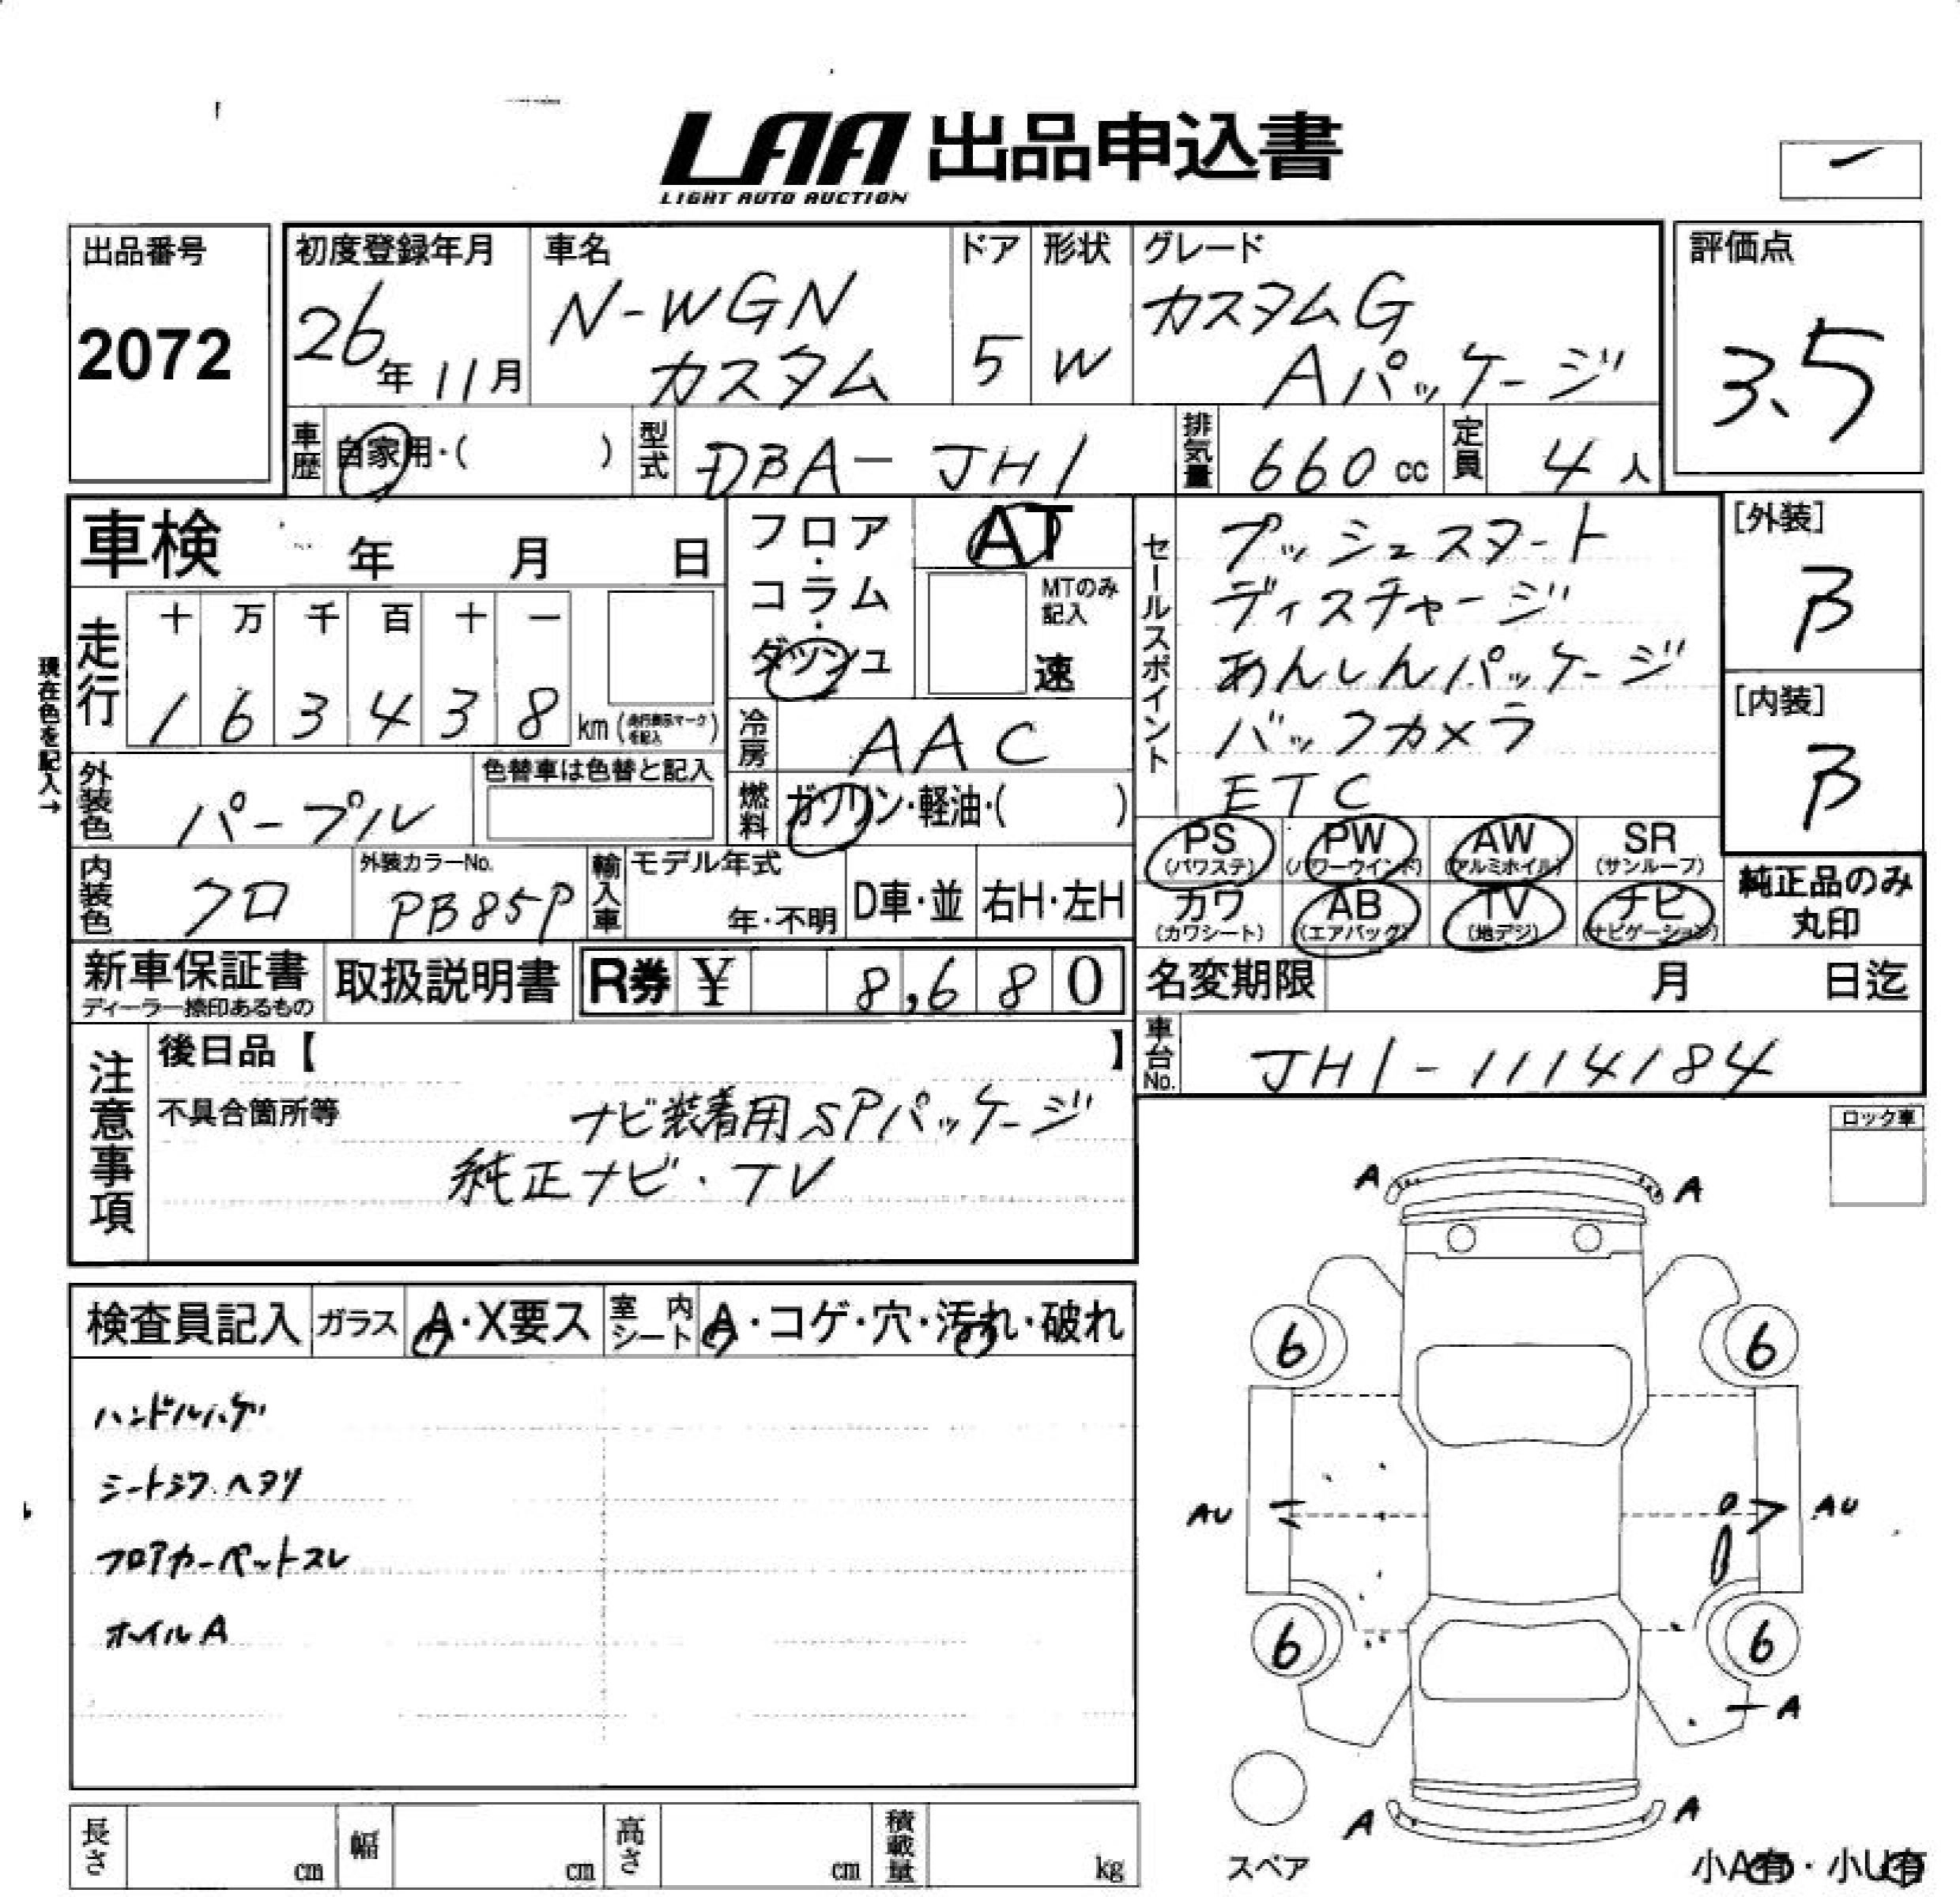 LAA 出品申込書
LIGHT AUTO AUCTION
出品番号
2072
初度登録年月
26年11月
車名
N-WGN
カスタム
ドア
5
形状
W
グレード
カスタムG
Aパッケージ
評価点
3.5
車歴
自家用・( )
型式
DBA-JH1
排気量
660 cc
定員
4 人
車検 年 月 日
フロア・コラム・ダッシュ
AT
MTのみ記入
速
セールスポイント
プッシュスタート
ディスチャージ
あんしんパッケージ
バックカメラ
ETC
[外装]
B
[内装]
B
現在色を記入→
走行
十 万 千 百 十 一
1 6 3 4 3 8 km (走行表示マークを記入)
冷房
AAC
外装色
パープル
色替車は色替と記入
燃料
ガソリン・軽油・( )
PS (パワステ)
PW (パワーウインド)
AW (アルミホイル)
SR (サンルーフ)
カワ (カワシート)
AB (エアバッグ)
TV (地デジ)
ナビ (ナビゲーション)
純正品のみ
丸印
内装色
クロ
外装カラーNo.
PB85P
輸入車
モデル年式
年・不明
D車・並
右H・左H
新車保証書
ディーラー捺印あるもの
取扱説明書
R券 ¥ 8,680
名変期限 月 日迄
車台No.
JH1-1114184
注意事項
後日品【 】
不具合箇所等
ナビ装着用SPパッケージ
純正ナビ・TV
ロック車
検査員記入
ガラス
A・X要ス
室内シート
A・コゲ・穴・汚れ・破れ
ハンドルハゲ
シートシワ.ヘタリ
フロアカーペットスレ
ホイルA
A A
6 6
AU AU
6 6
A
A A
スペア
小A有・小U有
長さ cm
幅 cm
高さ cm
積載量 kg